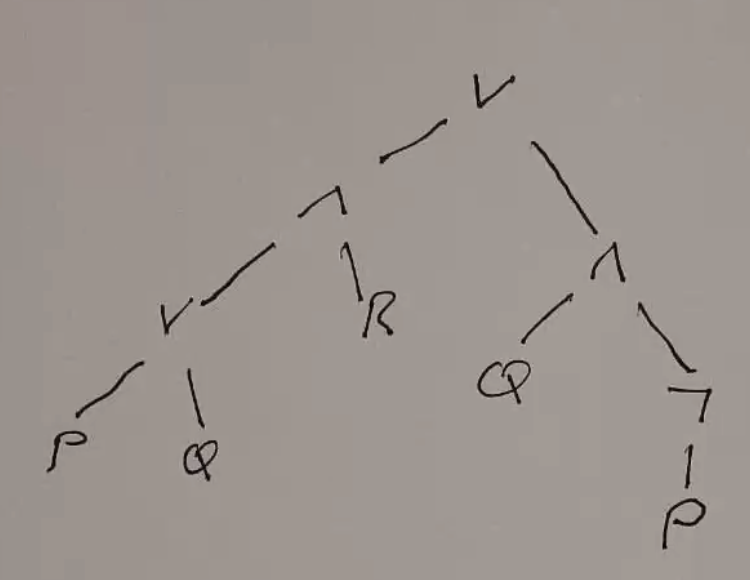 ∨
∧
∧
∨
R
Q
¬
P
Q
P